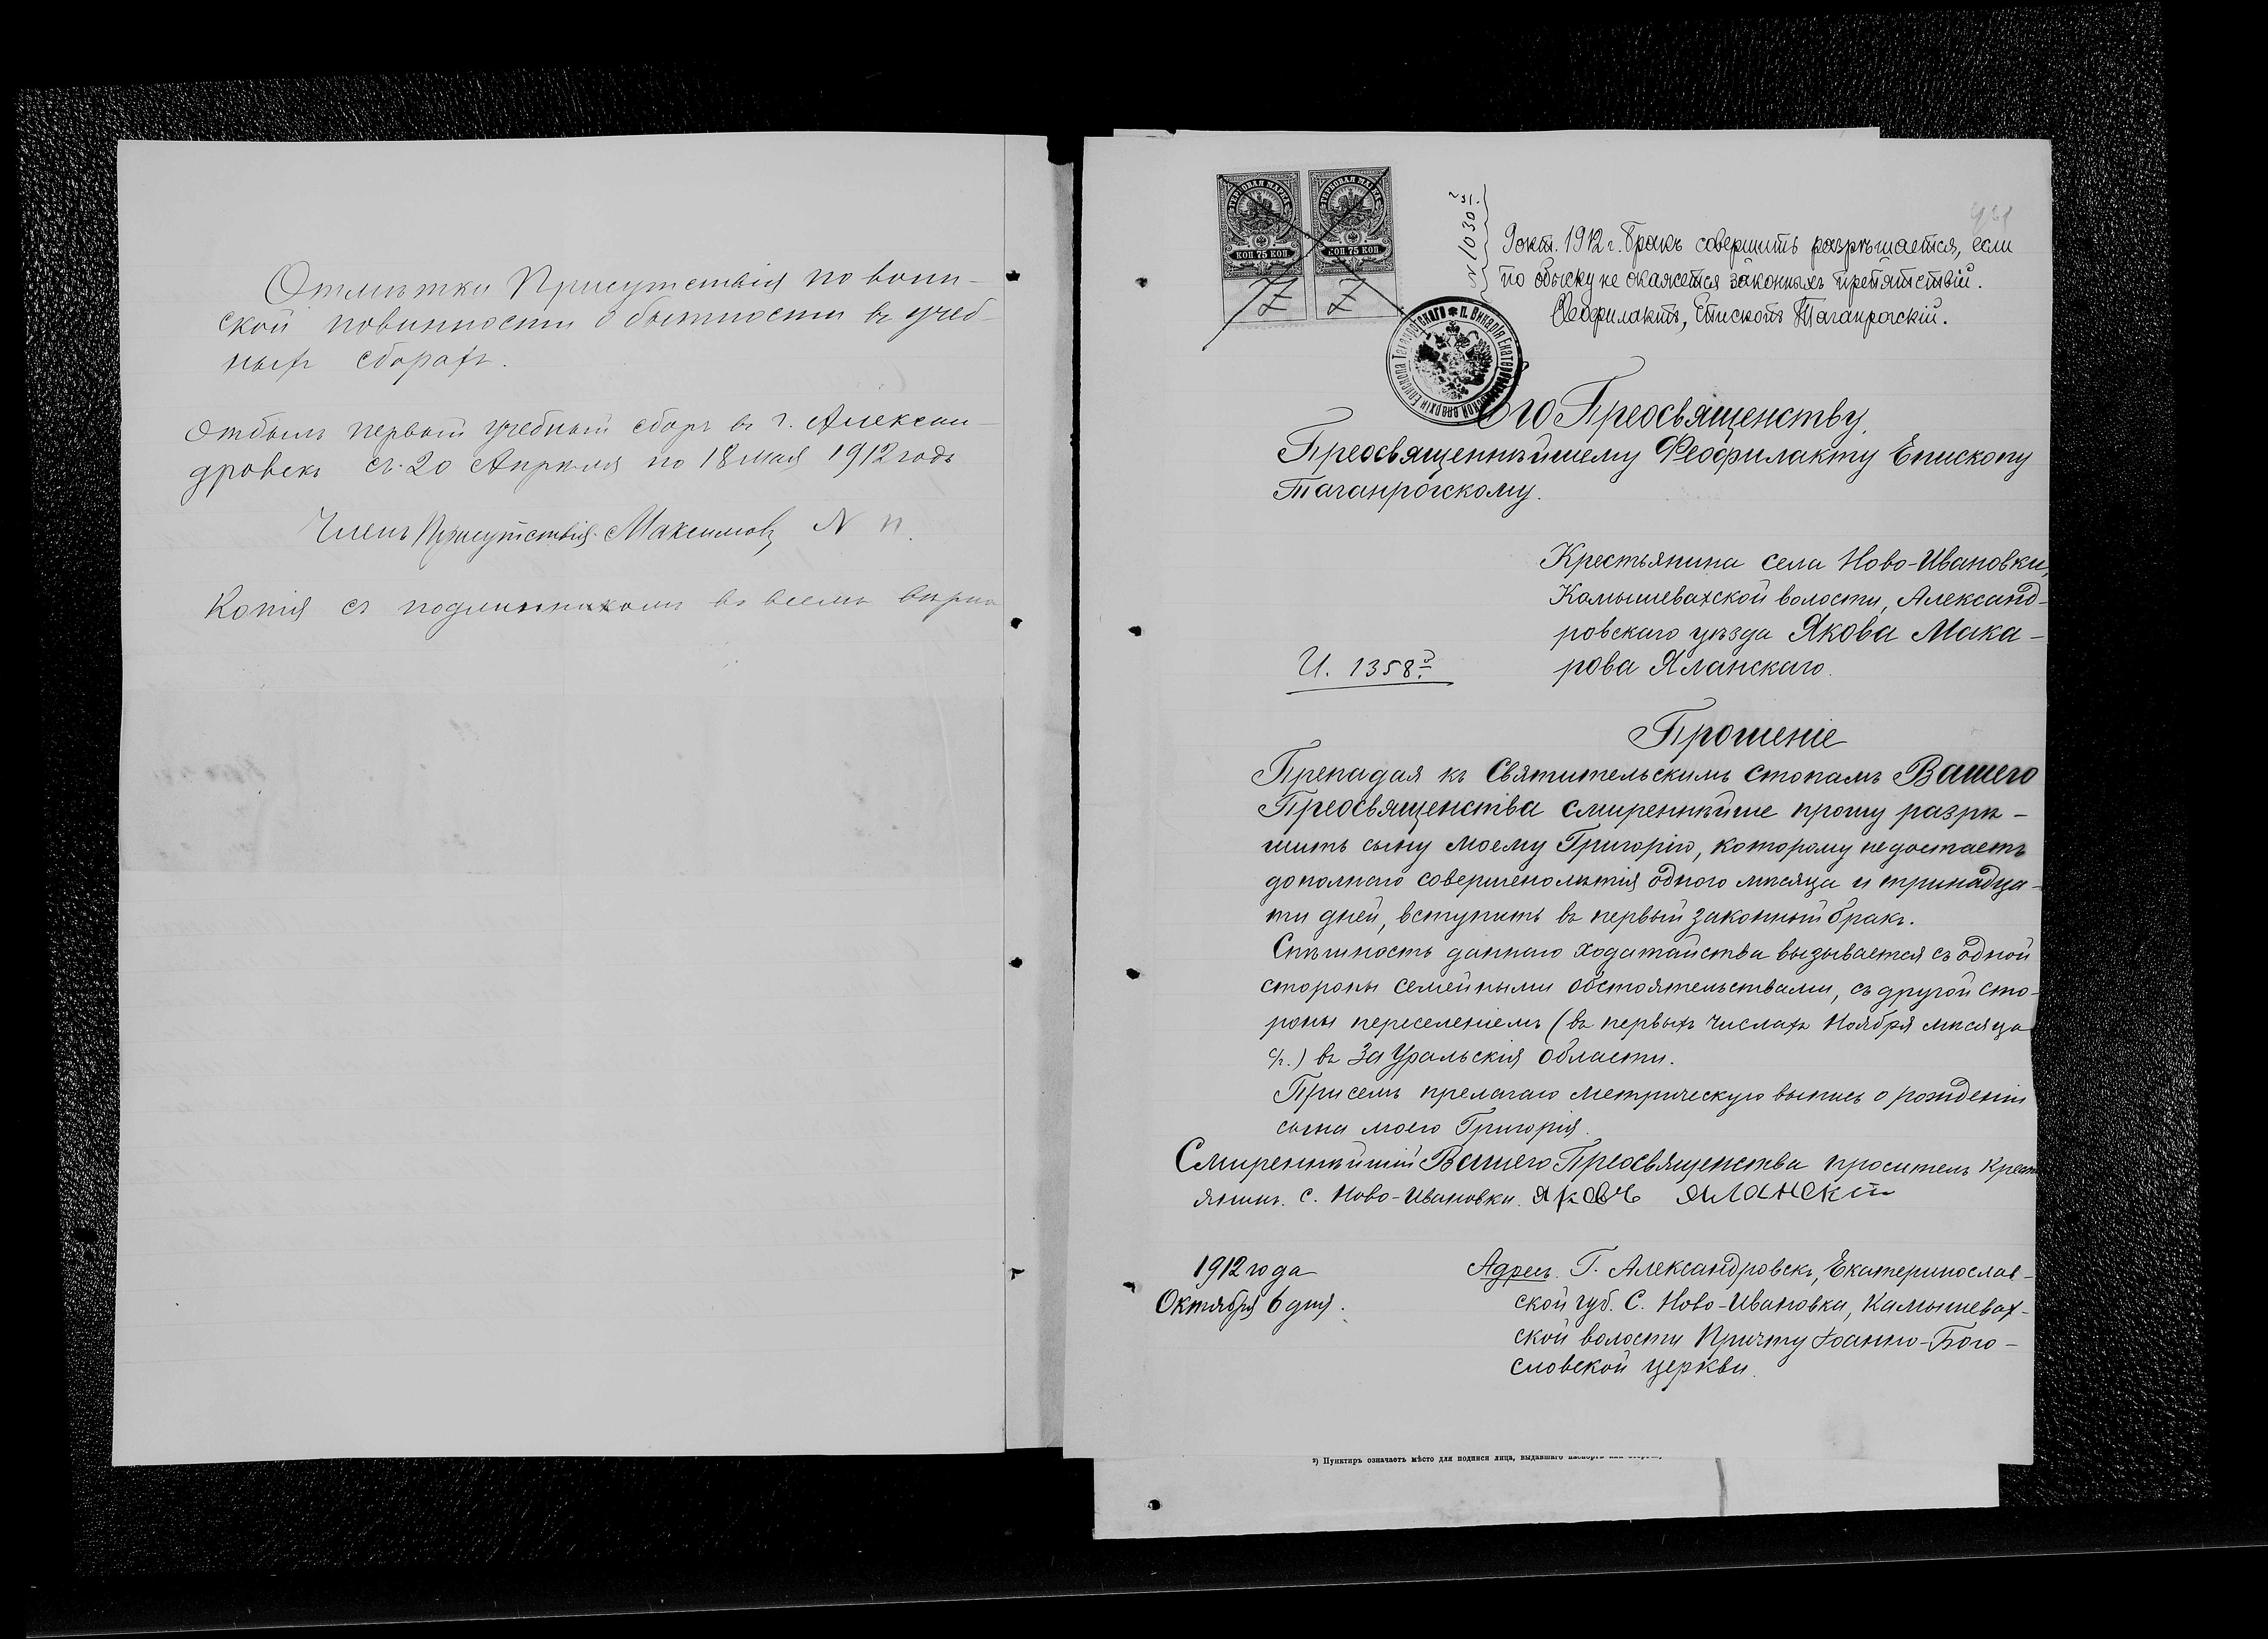 Отмѣтки Присутствія по воин-
ской повинности о бытности въ учеб-
ныхъ сборахъ.
Отбылъ первый учебный сборъ въ г. Алексан-
дровскѣ съ 20 Апрѣля по 18 мая 1912 года
Членъ Присутствія Максимовъ
Копія съ подлинникомъ во всемъ вѣрна
ГЕРБОВАЯ МАРКА
КОП 75 КОП
ГЕРБОВАЯ МАРКА
КОП. 75 КОП
№ 1030
9 окт. 1912 г. Бракъ совершить разрѣшается, если
по обыску не окажется законныхъ препятствій.
Ѳеофилактъ, Епископъ Таганрогскій.
Его Преосвященству,
Преосвященнѣйшему Феофилакту Епископу
Таганрогскому.
Крестьянина села Ново-Ивановки,
Камышевахской волости, Александ-
ровскаго уѣзда Якова Мака-
рова Яланскаго.
И. 1358
Прошеніе
Препадая къ Святительскимъ стопамъ Вашего
Преосвященства смиреннѣйше прошу разрѣ-
шить сыну моему Григорію, которому недостаетъ
до полнаго совершенолѣтія одного мѣсяца и тринадца-
ти дней, вступить въ первый законный бракъ.
Спѣшность даннаго ходатайства вызывается съ одной
стороны семейными обстоятельствами, съ другой сто-
роны переселеніемъ (въ первыхъ числахъ Ноября мѣсяца
с/г.) въ За Уральскія области.
При семъ прелагаю метрическую выпись о рожденіи
сына моего Григорія.
Смиреннѣйшій Вашего Преосвященства проситель Крест
янинъ. с. Ново-Ивановки. Яковъ Яланскій
1912 года
Октября 6 дня.
Адресъ. Г. Александровскъ, Екатеринослав-
ской губ. С. Ново-Ивановка, Камышевах-
ской волости Причту Іоанно-Бого-
словской церкви.
²) Пунктиръ означаетъ мѣсто для подписи лица, выдавшаго